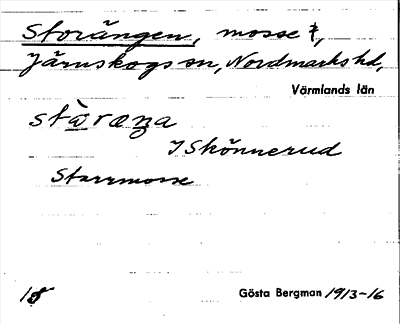 Storängen, mosse,
Järnskogs sn, Nordmarks hd,
Värmlands län
stɷ̀ræŋa
I Skönnerud
Starrmosse
18
Gösta Bergman 1913-16